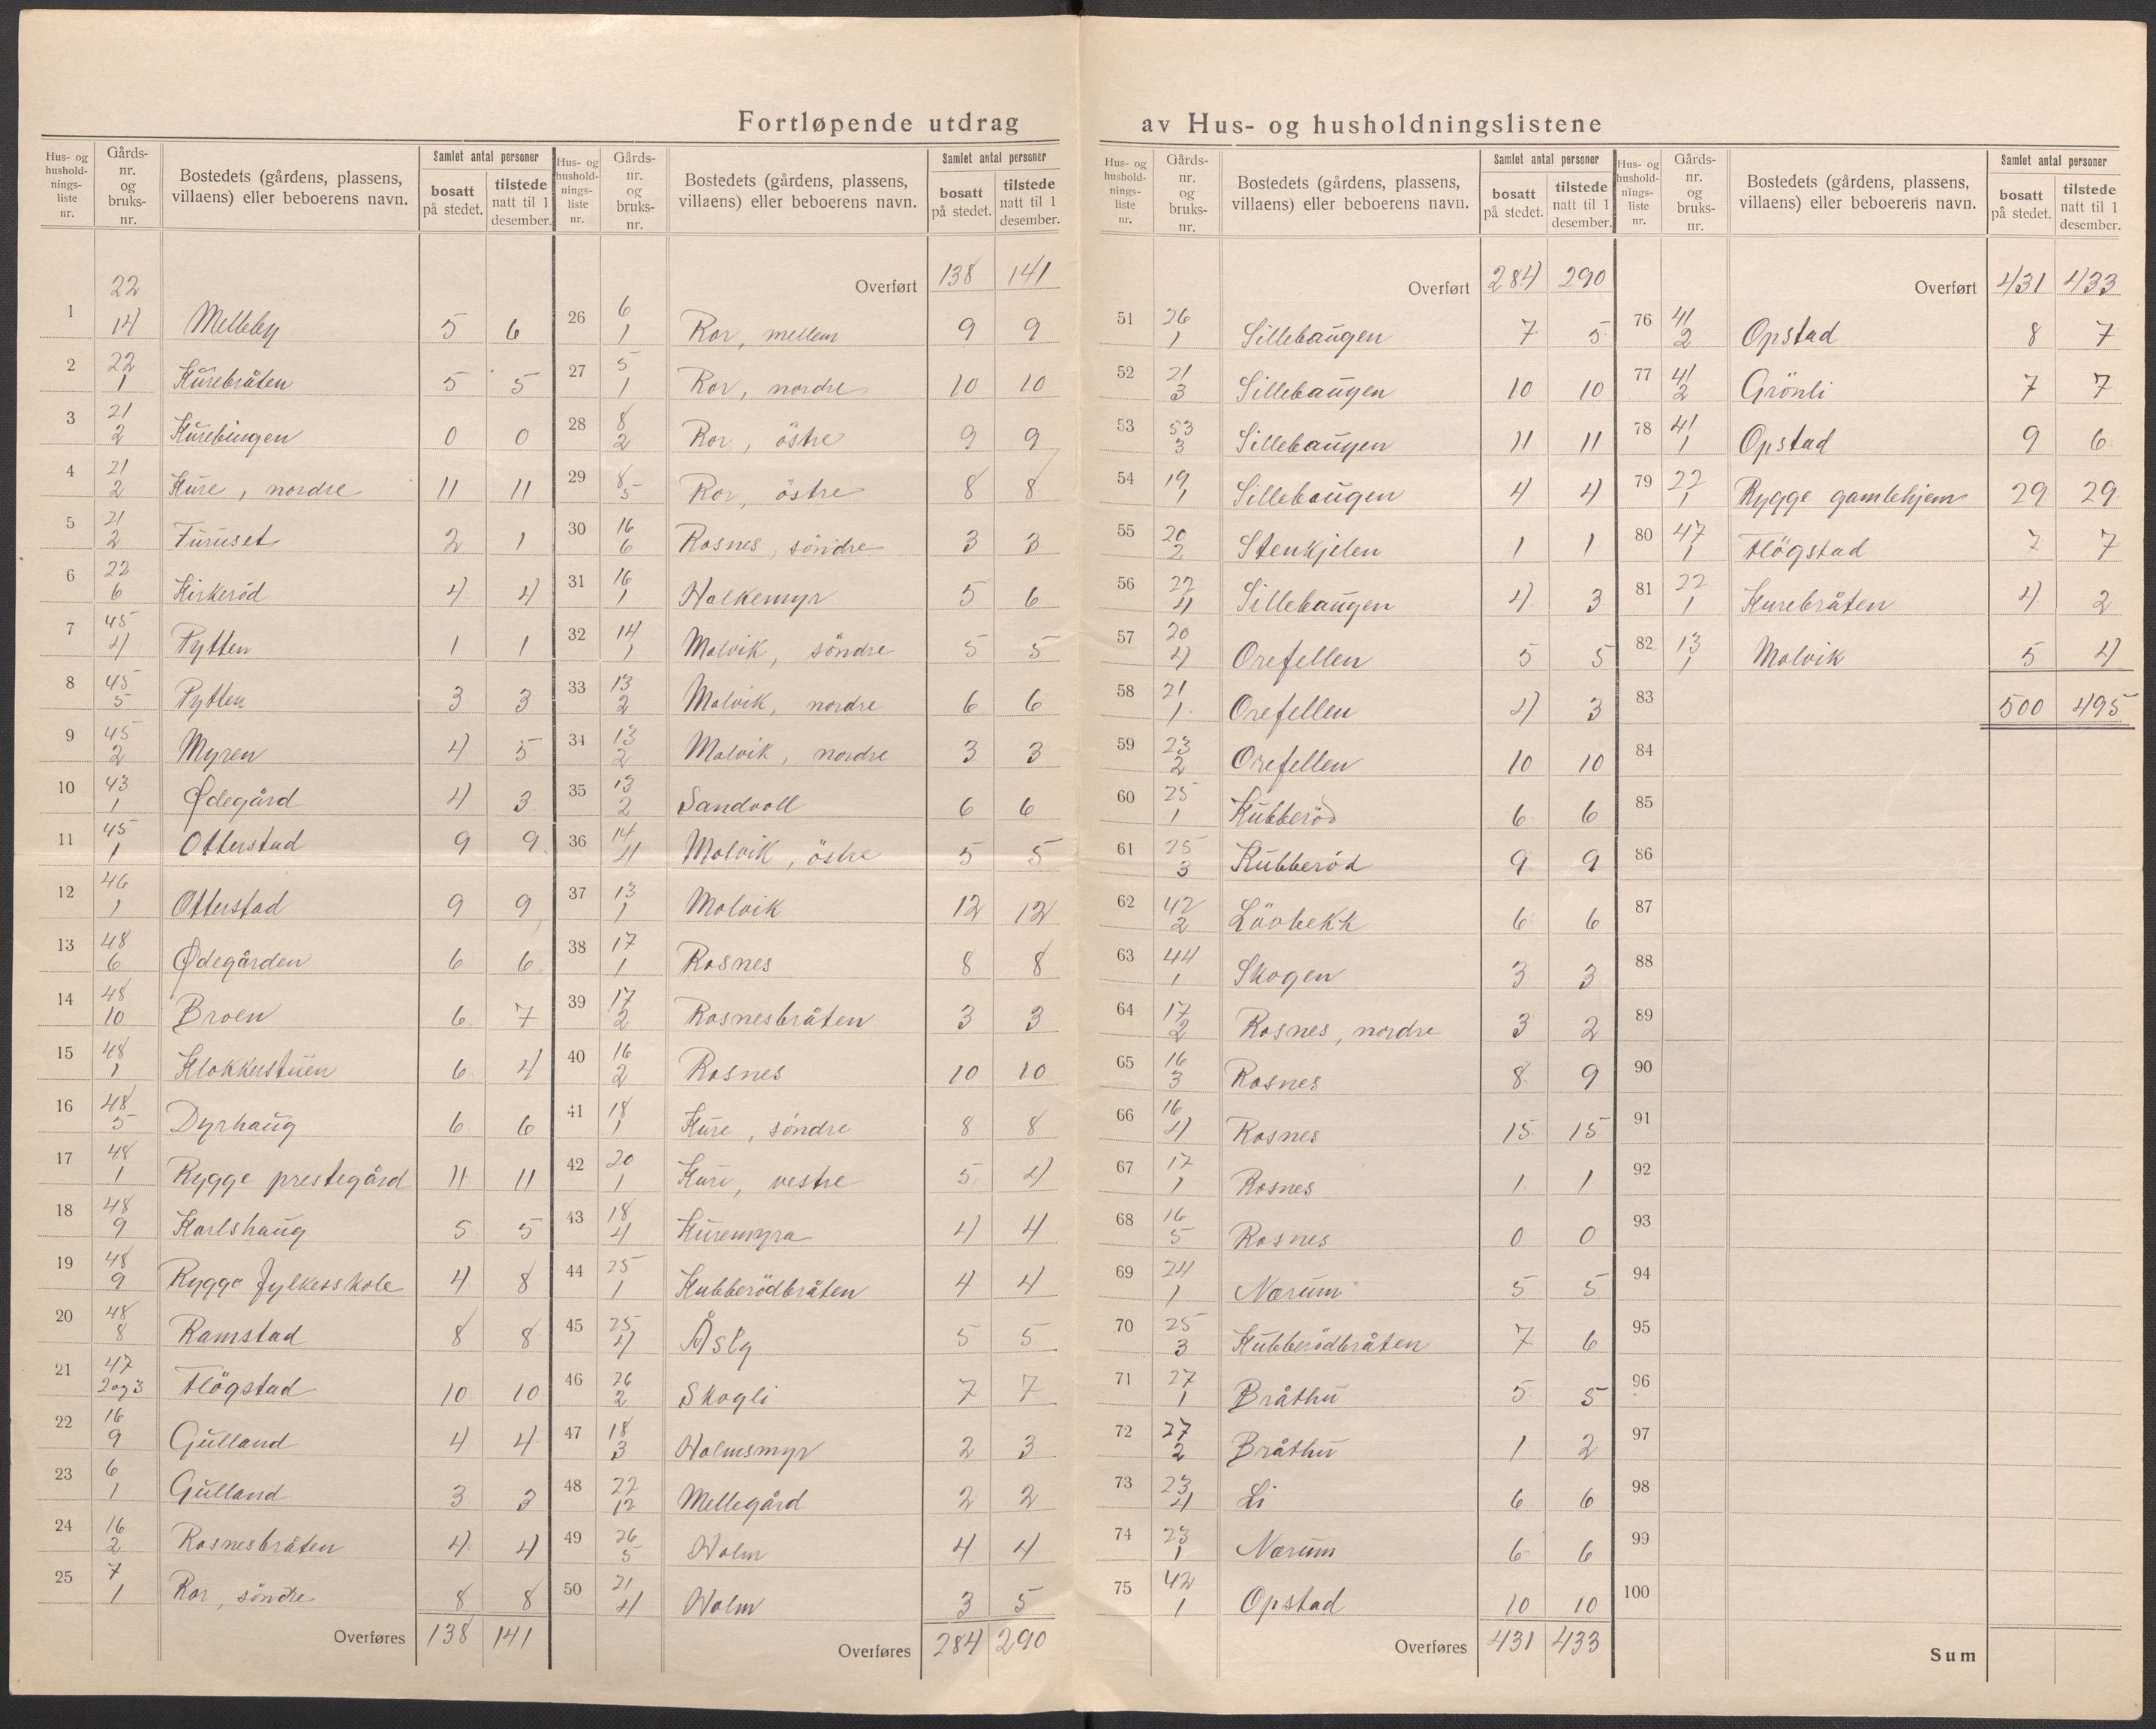 Fortløpende utdrag av Hus- og husholdningslistene
Hus- og husholdnings-liste nr. | Gårds-nr. og bruks-nr. | Bostedets (gårdens, plassens, villaens) eller beboerens navn. | Samlet antal personer bosatt på stedet. | tilstede natt til 1 desember.
1 22/14 Melleby 5 6
2 22/1 Kurebråten 5 5
3 21/2 Kurebingen 0 0
4 21/2 Kure, nordre 11 11
5 21/2 Furuset 2 1
6 22/6 Kirkeröd 4 4
7 45/4 Pytten 1 1
8 45/5 Pytten 3 3
9 45/2 Myren 4 5
10 43/1 Ødegård 4 3
11 45/1 Otterstad 9 9
12 46/1 Otterstad 9 9
13 48/6 Ødegården 6 6
14 48/10 Broen 6 7
15 48/1 Klokkerstuen 6 4
16 48/5 Dyrhaug 6 6
17 48/1 Rygge prestegård 11 11
18 48/9 Karlshaug 5 5
19 48/9 Rygge fylkesskole 4 8
20 48/8 Ramstad 8 8
21 47/2og3 Flögstad 10 10
22 16/9 Gulland 4 4
23 6/1 Gulland 3 3
24 16/2 Rosnesbråten 4 4
25 7/1 Ror, söndre 8 8
Overføres 138 141
Hus- og husholdnings-liste nr. | Gårds-nr. og bruks-nr. | Bostedets (gårdens, plassens, villaens) eller beboerens navn. | Samlet antal personer bosatt på stedet. | tilstede natt til 1 desember.
Overført 138 141
26 6/1 Ror, mellem 9 9
27 5/1 Ror, nordre 10 10
28 8/2 Ror, östre 9 9
29 8/5 Ror, östre 8 8
30 16/6 Rosnes, söndre 3 3
31 16/1 Holkemyr 5 6
32 14/1 Molvik, söndre 5 5
33 13/2 Molvik, nordre 6 6
34 13/2 Molvik, nordre 3 3
35 13/2 Sandvoll 6 6
36 14/4 Molvik, östre 5 5
37 13/1 Molvik 12 12
38 17/1 Rosnes 8 8
39 17/2 Rosnesbråten 3 3
40 16/2 Rosnes 10 10
41 18/1 Kure, söndre 8 8
42 20/1 Kure, vestre 5 4
43 18/4 Kuremyra 4 4
44 25/1 Kubberödbråten 4 4
45 25/4 Åsly 5 5
46 26/2 Skogli 7 7
47 18/3 Holmsmyr 2 3
48 22/12 Mellegård 2 2
49 26/5 Holm 4 4
50 21/4 Holm 3 5
Overføres 284 290
Hus- og husholdnings-liste nr. | Gårds-nr. og bruks-nr. | Bostedets (gårdens, plassens, villaens) eller beboerens navn. | Samlet antal personer bosatt på stedet. | tilstede natt til 1 desember.
Overført 284 290
51 26/1 Sillebaugen 7 5
52 21/3 Sillebaugen 10 10
53 53/3 Sillebaugen 11 11
54 19/1 Sillebaugen 4 4
55 20/2 Stenkjelen 1 1
56 22/4 Sillebaugen 4 3
57 20/4 Orefellen 5 5
58 21/1 Orefellen 4 3
59 23/2 Orefellen 10 10
60 25/1 Kubberöd 6 6
61 25/3 Kubberöd 9 9
62 42/2 Lövbekk 6 6
63 44/1 Skogen 3 3
64 17/2 Rosnes, nordre 3 2
65 16/3 Rosnes 8 9
66 16/4 Rosnes 15 15
67 17/1 Rosnes 1 1
68 16/5 Rosnes 0 0
69 24/1 Norum 5 5
70 25/3 Kubberödbråten 7 6
71 27/1 Bråthu 5 5
72 27/2 Bråthu 1 2
73 23/4 Li 6 6
74 23/1 Norum 6 6
75 42/1 Opstad 10 10
Overføres 431 433
Hus- og husholdnings-liste nr. | Gårds-nr. og bruks-nr. | Bostedets (gårdens, plassens, villaens) eller beboerens navn. | Samlet antal personer bosatt på stedet. | tilstede natt til 1 desember.
Overført 431 433
76 41/2 Opstad 8 7
77 41/2 Grönli 7 7
78 41/1 Opstad 9 6
79 22/1 Rygge gamlehjem 29 29
80 47/1 Flögstad 7 7
81 22/1 Kurebråten 4 2
82 13/1 Molvik 5 4
83 500 495
84
85
86
87
88
89
90
91
92
93
94
95
96
97
98
99
100
Sum